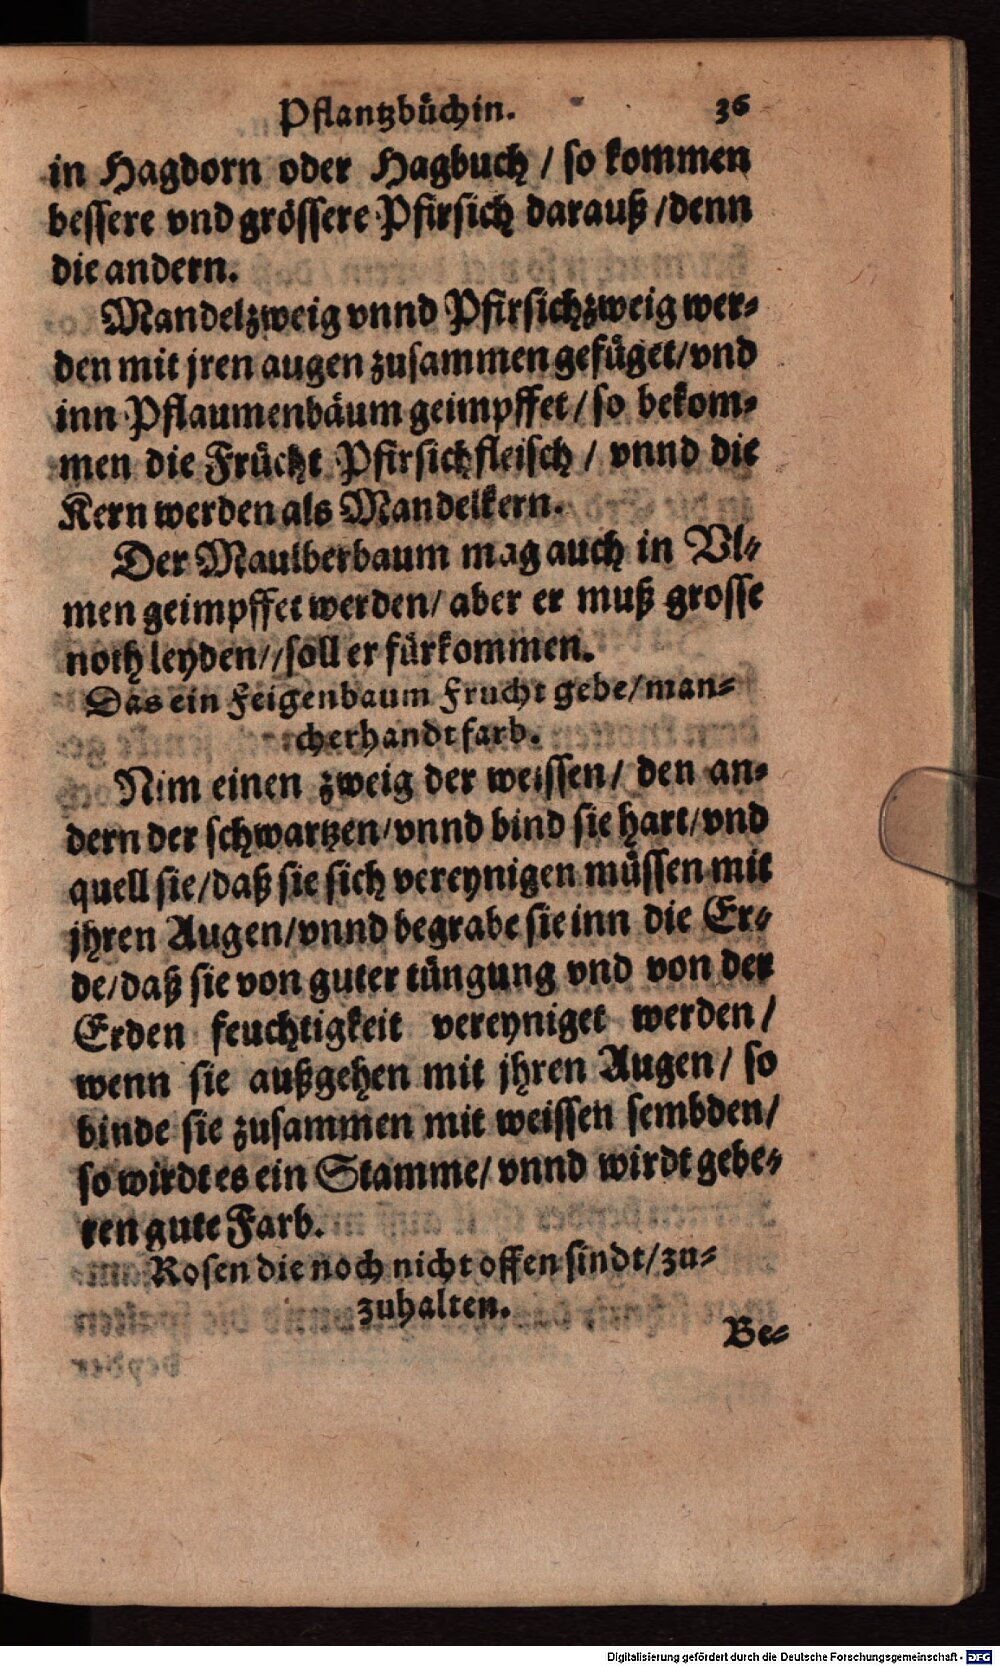 Pflantzbůchin. 36
in Hagdorn oder Hagbuch / so kommen
bessere vnd grössere Pfirsich darauß / denn
die andern.
Mandelzweig vnnd Pfirsichzweig wer-
den mit jren augen zusammen gefůget / vnd
inn Pflaumenbäum geimpffet / so bekom-
men die Frůcht Pfirsichfleisch / vnnd die
Kern werden als Mandelkern.
Der Maulberbaum mag auch in Vl-
men geimpffet werden / aber er muß grosse
noth leyden / / soll er fůrkommen.
Das ein Feigenbaum Frucht gebe / man-
cherhandt farb.
Nim einen zweig der weissen / den an-
dern der schwartzen / vnnd bind sie hart / vnd
quell sie / daß sie sich vereynigen můssen mit
jhren Augen / vnnd begrabe sie inn die Er-
de / daß sie von guter tůngung vnd von der
Erden feuchtigkeit vereyniget werden /
wenn sie außgehen mit jhren Augen / so
binde sie zusammen mit weissen sembden /
so wirdt es ein Stamme / vnnd wirdt gebe-
ren gute Farb.
Rosen die noch nicht offen sindt / zu-
zuhalten.
Be-
Digitalisierung gefördert durch die Deutsche Forschungsgemeinschaft - DFG